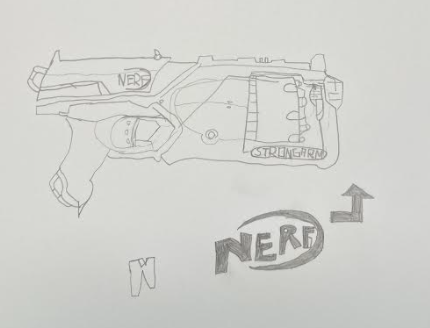 NERF
STRONGARM
NERF
N